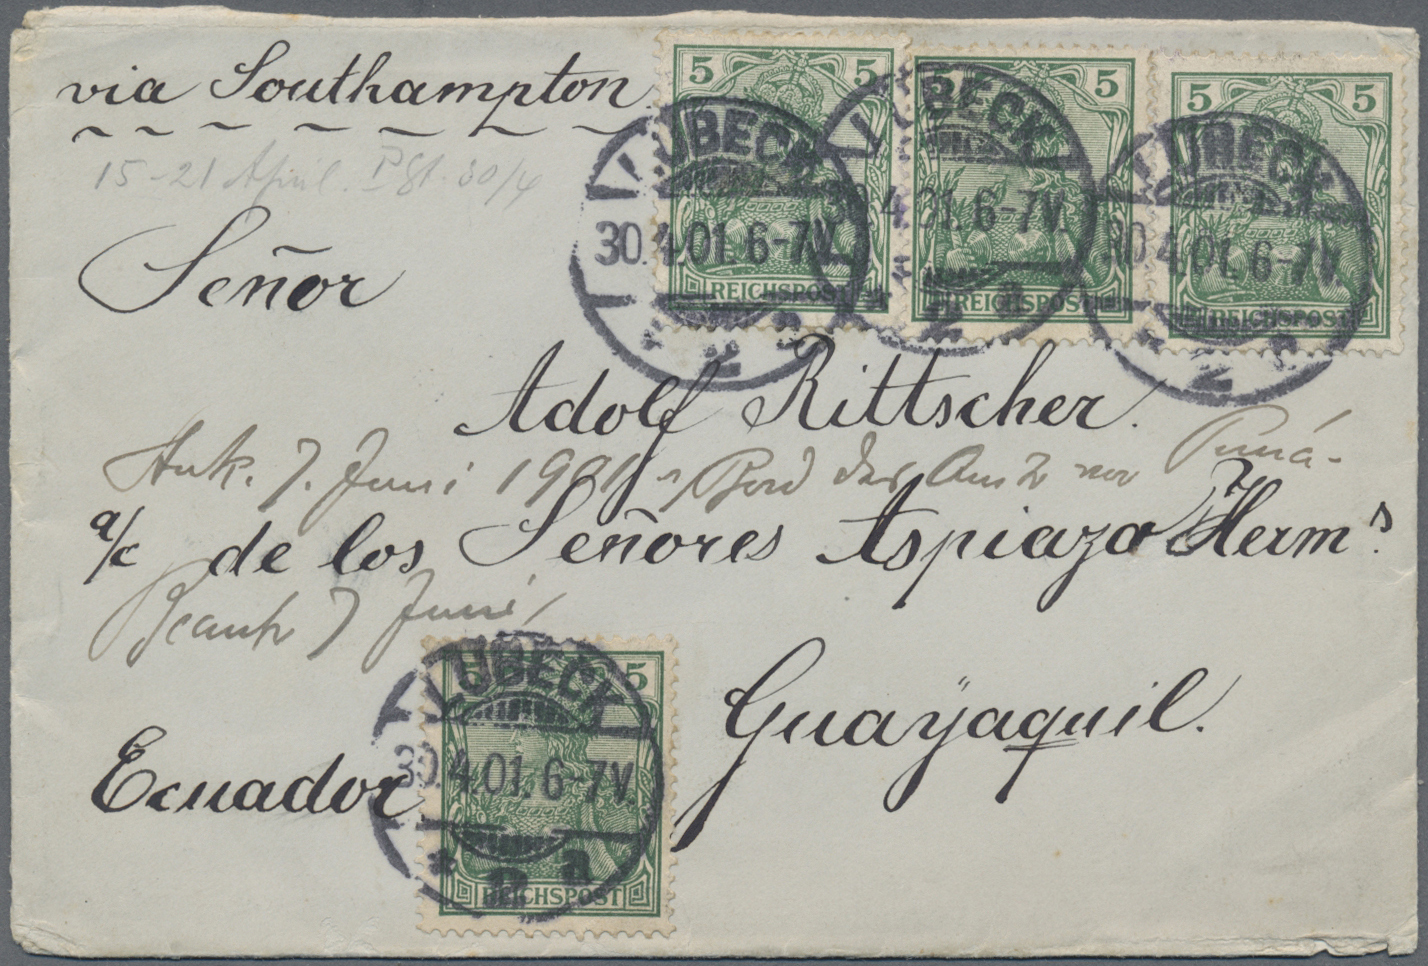 via Southampton
15-21 April. PSt. 30/4
5 5
5 5
5 5
LÜBECK
30.4.01.6-7V.
* 2 a
LÜBECK
30.4.01.6-7V.
* 2 a
LÜBECK
30.4.01.6-7V.
* 2 a
REICHSPOST
REICHSPOST
REICHSPOST
Señor
Adolf Rittscher.
Ank. 7. Juni 1901 Bord des vor Puná-
a/c de los Señores Aspiazo Herms.
Beantw 7 Juni,
5 5
LÜBECK
30.4.01.6-7V.
* 2 a
REICHSPOST
Guayaquil.
Ecuador